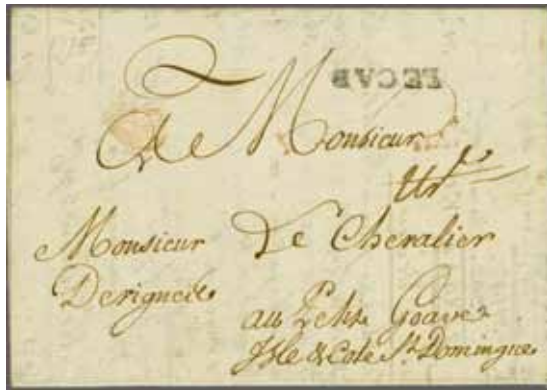 LE CAP
A Monsieur
Monsieur Le Chevalier
Derigueil
au Petit Goave
Isle & Cote St Domingue